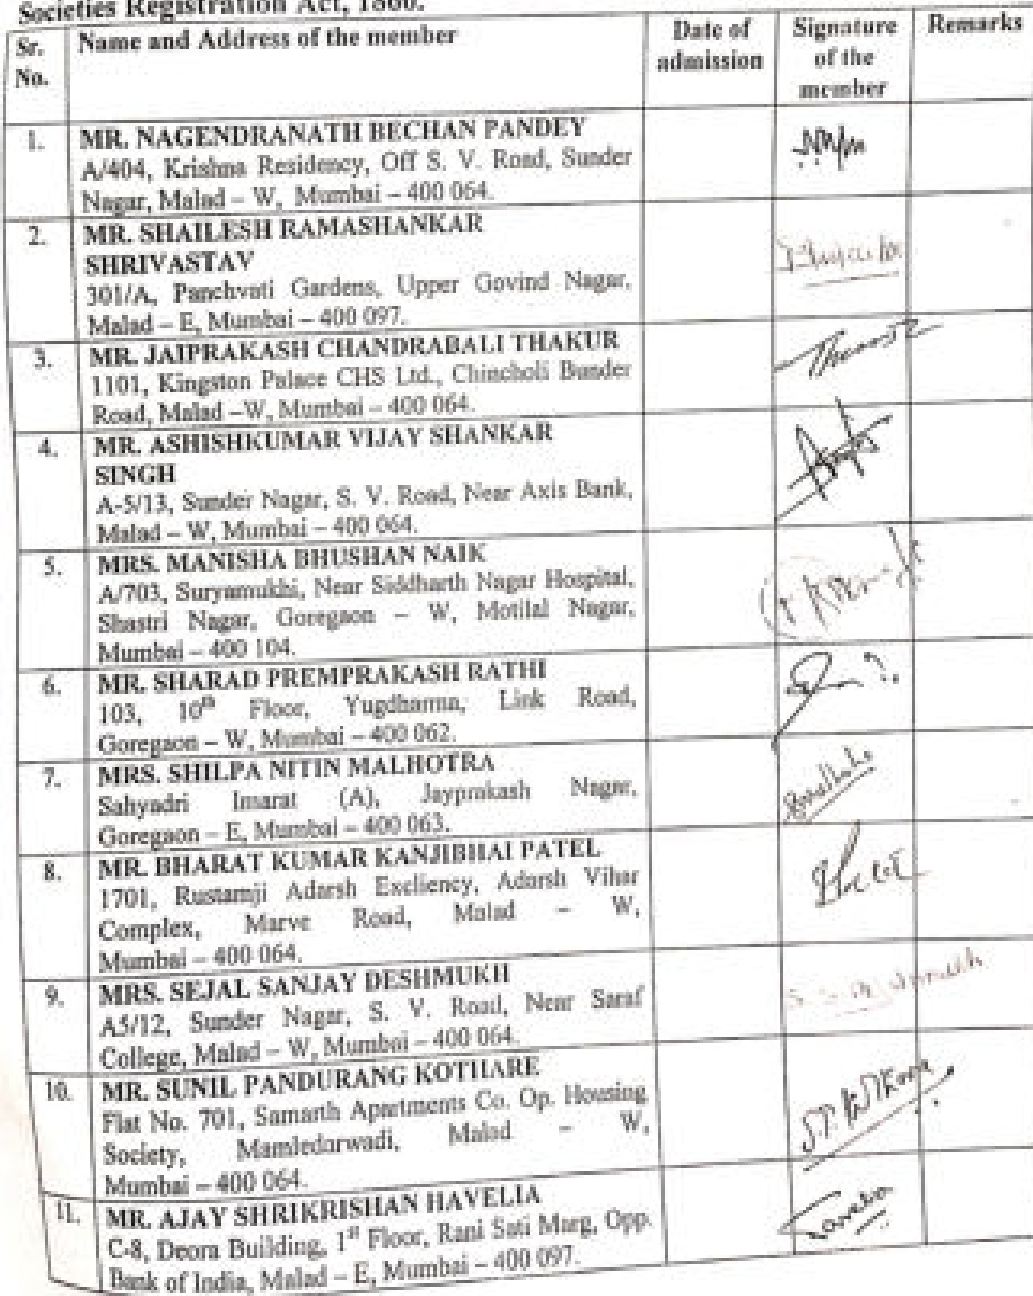 Societies Registration Act, 1860.
Sr. No. Name and Address of the member Date of admission Signature of the member Remarks
1. MR. NAGENDRANATH BECHAN PANDEY
A/404, Krishna Residency, Off S. V. Road, Sunder
Nagar, Malad – W, Mumbai – 400 064.
2. MR. SHAILESH RAMASHANKAR
SHRIVASTAV
301/A, Panchvati Gardens, Upper Govind Nagar,
Malad – E, Mumbai – 400 097.
3. MR. JAIPRAKASH CHANDRABALI THAKUR
1101, Kingston Palace CHS Ltd., Chincholi Bunder
Road, Malad –W, Mumbai – 400 064.
4. MR. ASHISHKUMAR VIJAY SHANKAR
SINGH
A-5/13, Sunder Nagar, S. V. Road, Near Axis Bank,
Malad – W, Mumbai – 400 064.
5. MRS. MANISHA BHUSHAN NAIK
A/703, Suryamukhi, Near Siddharth Nagar Hospital,
Shastri Nagar, Goregaon – W, Motilal Nagar,
Mumbai – 400 104.
6. MR. SHARAD PREMPRAKASH RATHI
103, 10th Floor, Yugdharma, Link Road,
Goregaon – W, Mumbai – 400 062.
7. MRS. SHILPA NITIN MALHOTRA
Sahyadri Imarat (A), Jayprakash Nagar,
Goregaon – E, Mumbai – 400 063.
8. MR. BHARAT KUMAR KANJIBHAI PATEL
1701, Rustamji Adarsh Excliency, Adarsh Vihar
Complex, Marve Road, Malad – W,
Mumbai – 400 064.
9. MRS. SEJAL SANJAY DESHMUKH
A5/12, Sunder Nagar, S. V. Road, Near Saraf
College, Malad – W, Mumbai – 400 064.
10. MR. SUNIL PANDURANG KOTHARE
Flat No. 701, Samarth Apartments Co. Op. Housing
Society, Mamledarwadi, Malad – W,
Mumbai – 400 064.
11. MR. AJAY SHRIKRISHAN HAVELIA
C-8, Deora Building, 1st Floor, Rani Sati Marg, Opp.
Bank of India, Malad – E, Mumbai – 400 097.